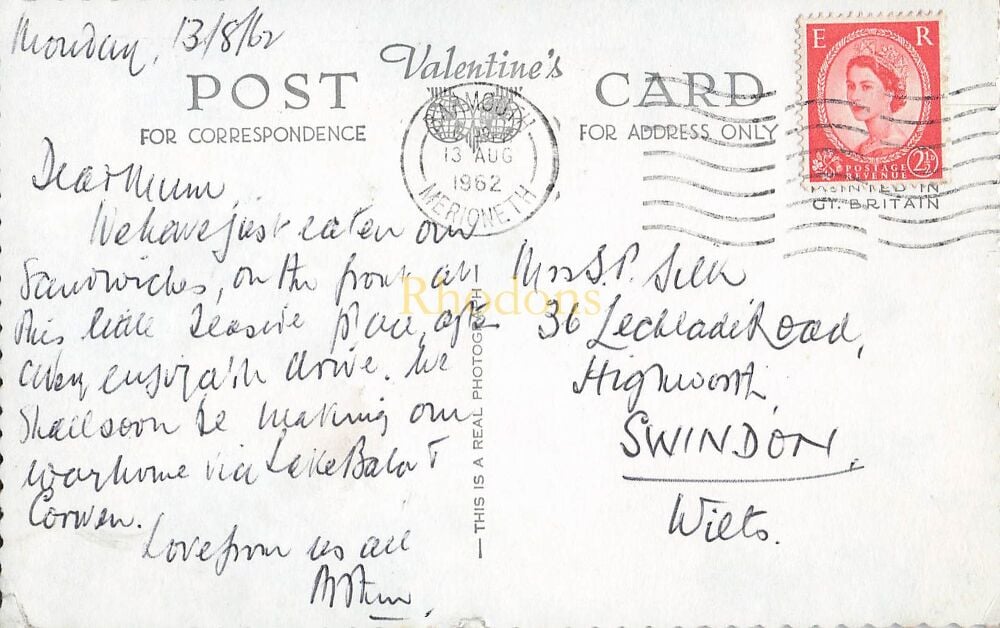 Monday, 13/8/62
Valentine's
POST CARD
FOR CORRESPONDENCE
FOR ADDRESS ONLY
BARMOUTH
13 AUG
1962
MERIONETH
E R
POSTAGE
REVENUE
2½D
PRINTED IN
GT. BRITAIN
Dear Mum,
We have just eaten our
Sandwiches, on the front at
this little seaside place, after
a very enjoyable drive. We
shall soon be making our
way home via Lake Bala &
Corwen.
Love from us all
— THIS IS A REAL PHOTOGRAPH —
Rhodons
Mrs S.P. Silk
36 Lechlade Road,
Highworth,
SWINDON,
Wilts.